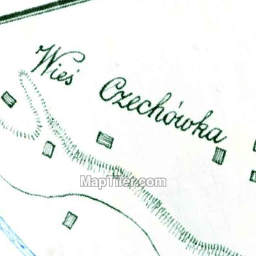 Wieś Czechówka
MapTiler.com